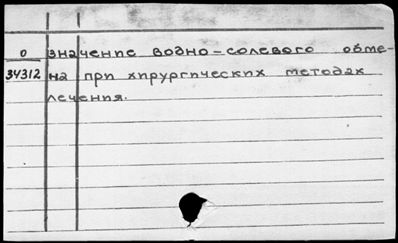 О значение водно-солевого обме-
34312 на при хирургических методах
лечения.